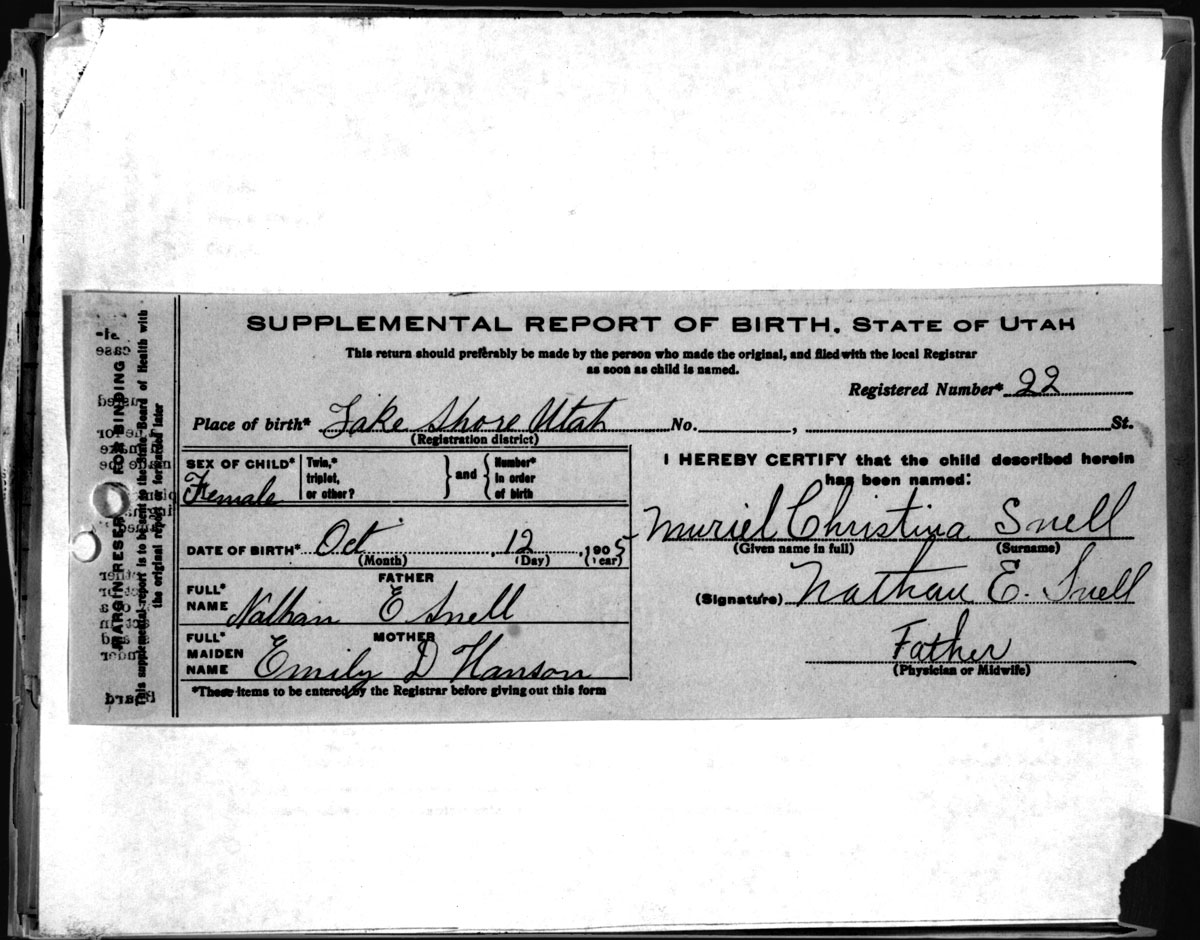 SUPPLEMENTAL REPORT OF BIRTH. STATE OF UTAH
This return should preferably be made by the person who made the original, and filed with the local Registrar
as soon as child is named.
Registered Number* 22
Place of birth* Lake Shore Utah No. , St.
(Registration district)
SEX OF CHILD*
Female
Twin,*
triplet,
or other?
} and {
Number*
in order
of birth
DATE OF BIRTH* Oct , 12 , 1905
(Month) (Day) (Year)
FATHER
FULL*
NAME Nathan E Snell
MOTHER
FULL*
MAIDEN
NAME Emily D Hanson
*These items to be entered by the Registrar before giving out this form
I HEREBY CERTIFY that the child described herein
has been named:
Muriel Christina Snell
(Given name in full) (Surname)
(Signature) Nathan E. Snell
Father
(Physician or Midwife)
MARGIN RESERVED FOR BINDING
This supplemental report is to be sent to the State Board of Health with
the original report is forwarded later